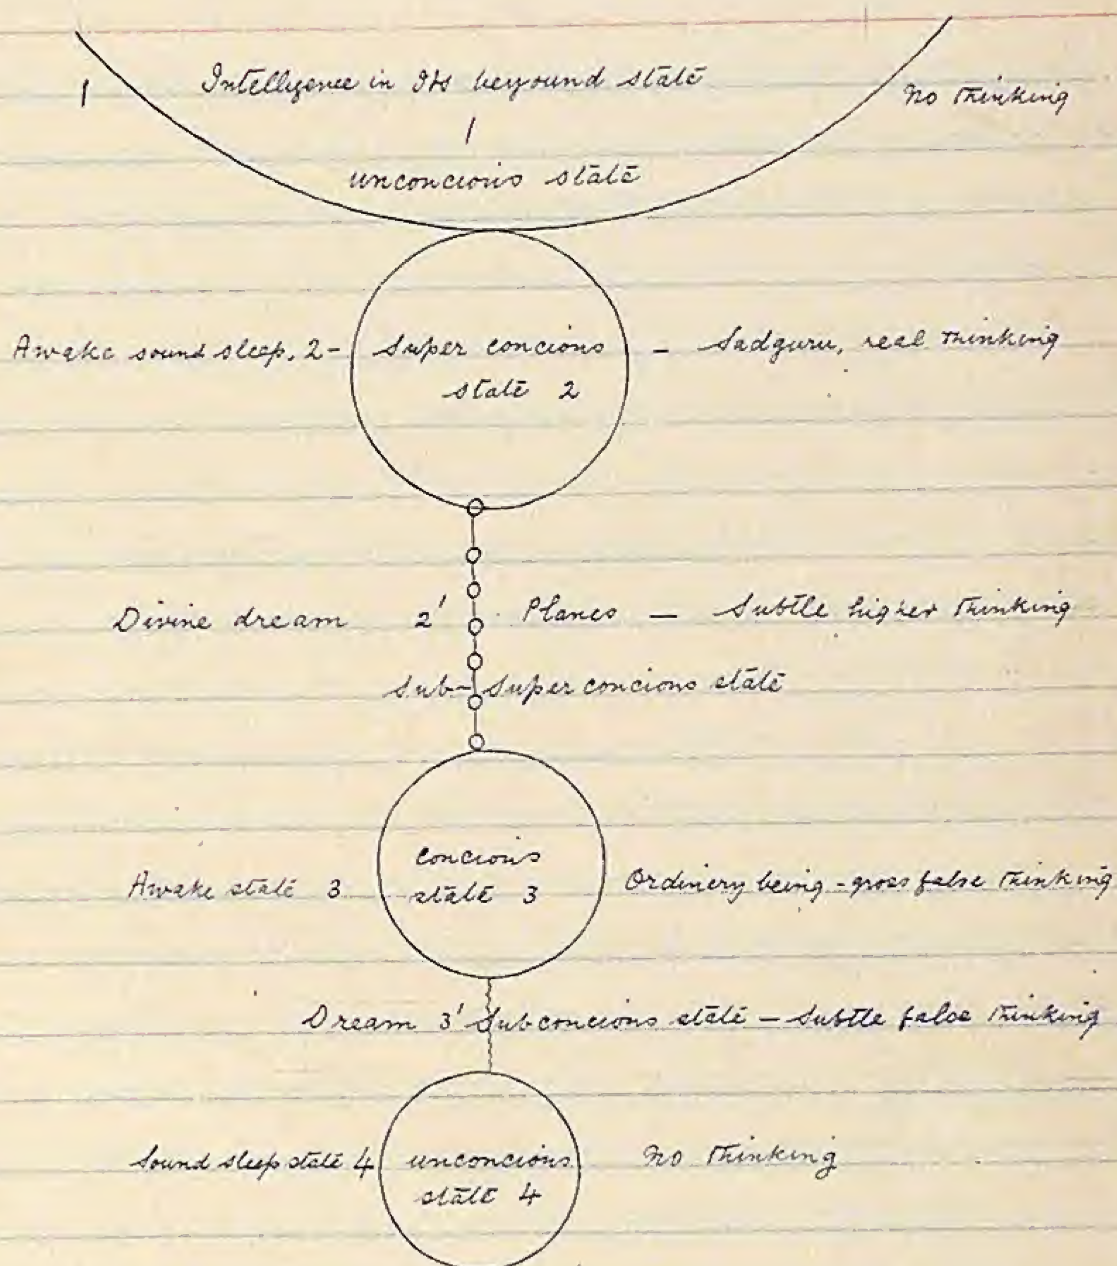 1 Intelligence in Its beyound state No thinking
1
unconcious state
Awake sound sleep, 2- Super concious - Sadguru, real thinking
state 2
Divine dream 2' Planes — Subtle higher thinking
Sub-Super concious state
Awake state 3 concious Ordinery being - gross false thinking
state 3
Dream 3' Subconcious state — Subtle false thinking
Sound sleep state 4 unconcious No thinking
state 4